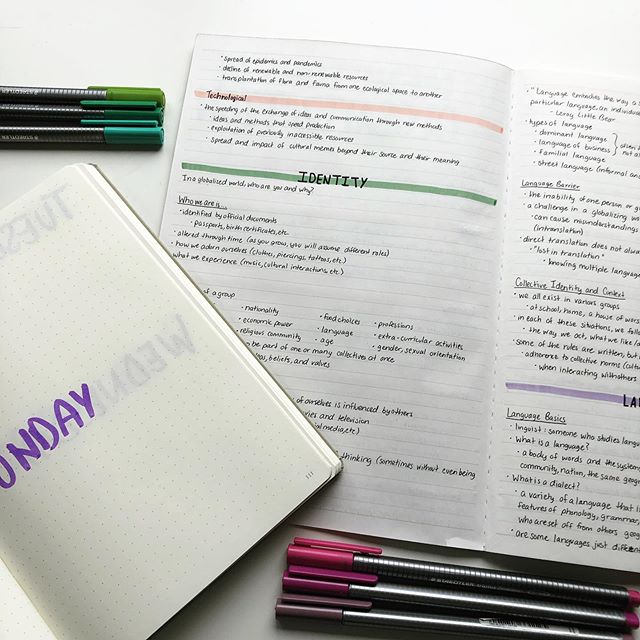 • spread of epidemics and pandemics
• decline of renewable and non-renewable resources
• transplantation of flora and fauna from one ecological space to another
Technological
• the speeding of the exchange of ideas and communication through new methods
• ideas and methods that speed production
• exploitation of previously inaccessible resources
• spread and impact of cultural memes beyond their source and their meaning
IDENTITY
In a globalized world, who are you and why?
Who we are is...
• identified by official documents
• passports, birth certificates, etc.
• altered through time (as you grow, you will assume different roles)
• how we adorn ourselves (clothes, piercings, tattoos, etc.)
what we experience (music, cultural interactions, etc.)
of a group
• nationality
• food choices
• professions
• economic power
• language
• extra-curricular activities
religious community
• age
• gender, sexual orientation
be part of one or many collectives at once
beliefs, and values
of ourselves is influenced by others
and television
media, etc)
thinking (sometimes without even being
• "Language embodies the way a
particular language, an individual
- Leroy Little Bear
• types of language
• dominant language
• language of business
• familial language
• street language (informal and
Language Barrier
• the inability of one person or
• a challenge in a globalizing
• can cause misunderstandings
(in translation)
• direct translation does not alwa
• "lost in translation"
• knowing multiple languag
Collective Identity and Context
• we all exist in various groups
• at school, home, a house of wors
• in each of these situations, we foll
• the way we act, what we like
• some of the rules are written, but
• adherence to collective norms (cultu
• when interacting with others
LA
Language Basics
• linguist: someone who studies langu
• What is a language?
• a body of words and the system
community, nation, the same geogra
• What is a dialect?
• a variety of a language that
features of phonology, gramma
who are set off from others geogr
• are some languages just differen
TUES
WEDNE
ONDAY
111
STAEDTLER